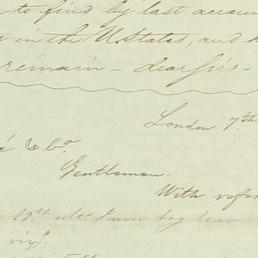 to find by last accoun
in the U. States, and
remain - dear sirs -
London 7th
& Co.
Gentlemen.
With refer
19th ulto I now beg leave
vizt.